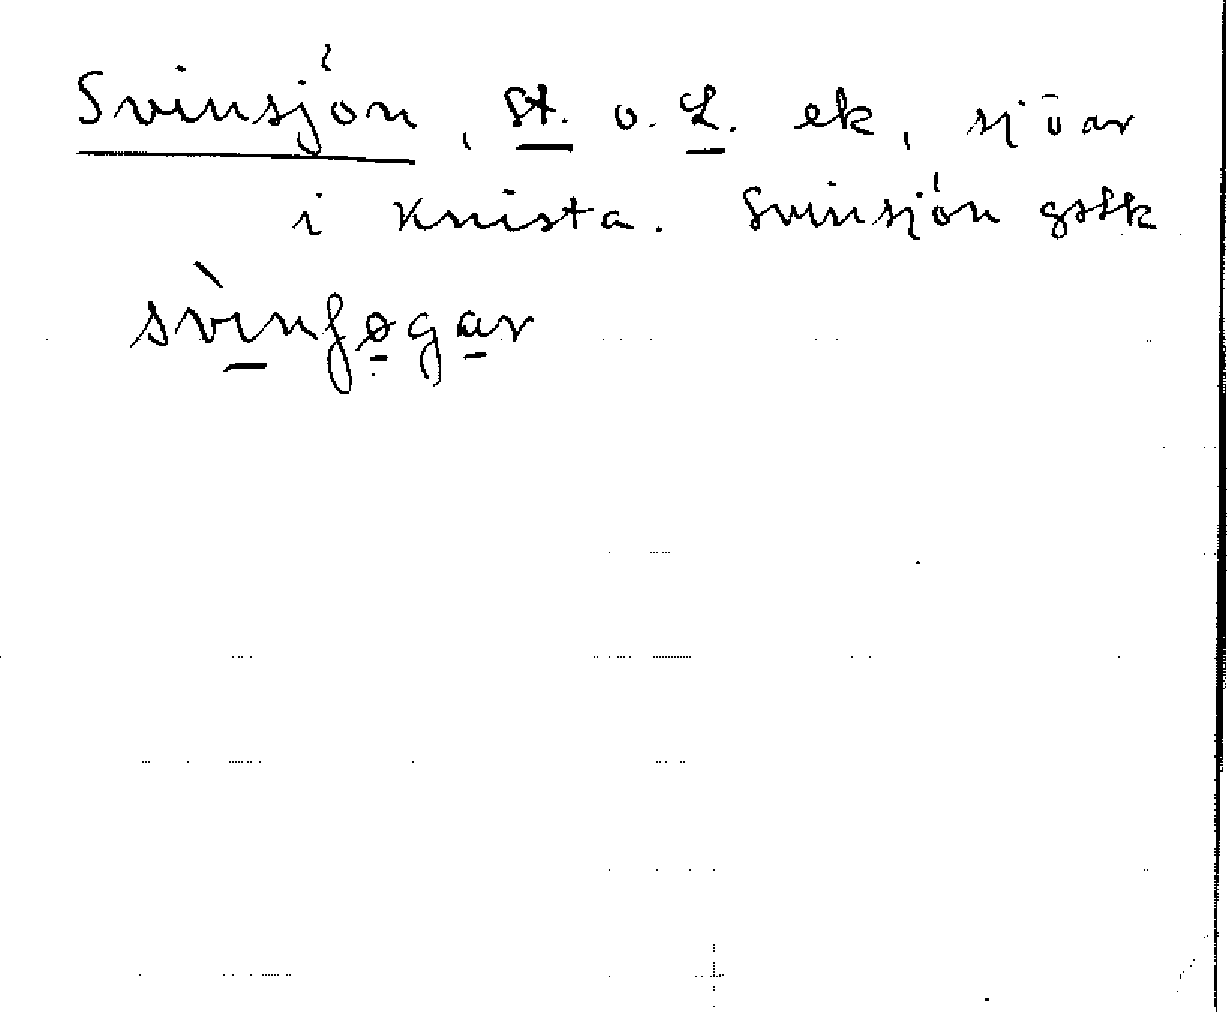 Svinsjön, St. o. L. ek, sjöar
i Knista. Svinsjön gstk
svinfogar